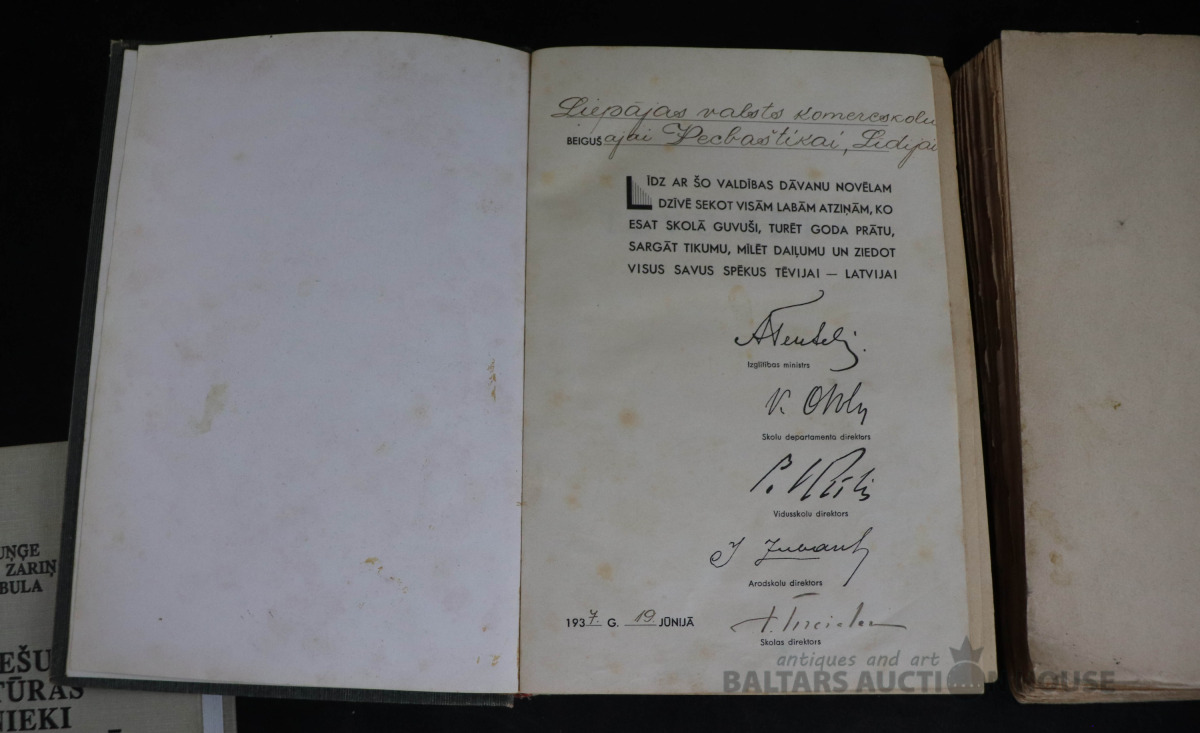 Liepājas valsts komercskolu
BEIGUŠajai Vecbaštikai, Lidijai
LĪDZ AR ŠO VALDĪBAS DĀVANU NOVĒLAM
DZĪVĒ SEKOT VISĀM LABĀM ATZIŅĀM, KO
ESAT SKOLĀ GUVUŠI, TURĒT GODA PRĀTU,
SARGĀT TIKUMU, MĪLĒT DAIĻUMU UN ZIEDOT
VISUS SAVUS SPĒKUS TĒVIJAI — LATVIJAI
Izglītības ministrs
Skolu departamenta direktors
Vidusskolu direktors
Arodskolu direktors
1937. G. 19. JŪNIJĀ
Skolas direktors
UŅĢE
ZARIŅ
BULA
EŠU
TŪRAS
NIEKI
antiques and art
BALTARS AUCTION HOUSE